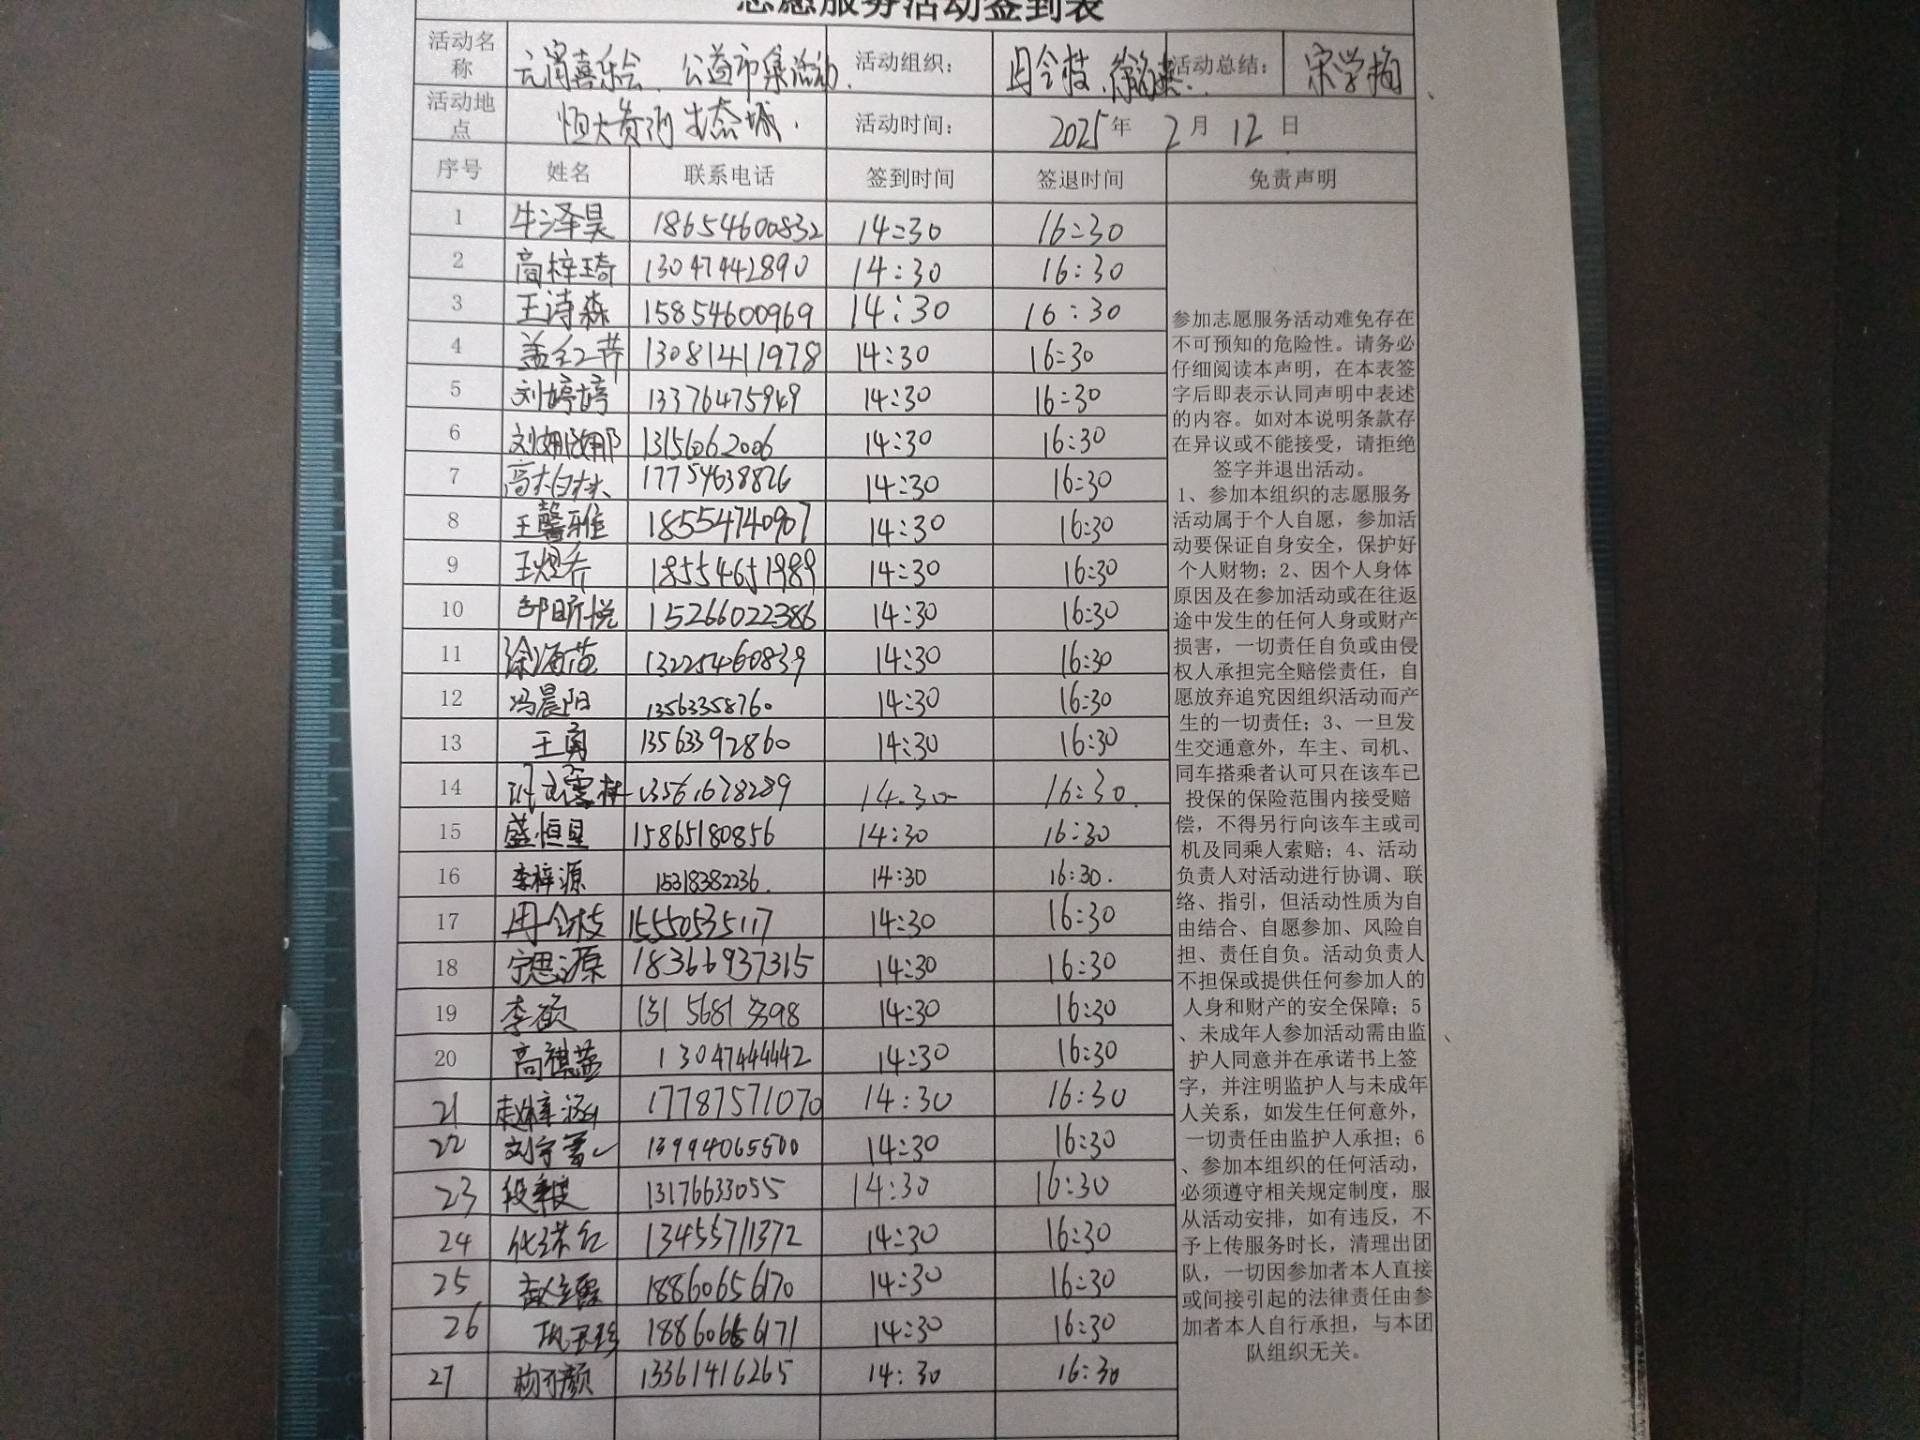 志愿服务活动签到表
活动名称 元宵喜乐会、公益市集活动. 活动组织: 周令枝、 活动总结: 宋学梅
活动地点 恒大黄河生态城. 活动时间: 2025年 2月 12日
序号 姓名 联系电话 签到时间 签退时间 免责声明
1 牛泽昊 18654600832 14:30 16:30
2 高梓琦 13047442890 14:30 16:30
3 王诗森 15854600969 14:30 16:30
4 盖红芹 13081411978 14:30 16:30
5 刘婷婷 13376475949 14:30 16:30
6 刘娜娜 13156062006 14:30 16:30
7 17754638826 14:30 16:30
8 王馨雅 18554740907 14:30 16:30
9 王煜乔 18554651989 14:30 16:30
10 邵昕悦 15266022386 14:30 16:30
11 徐海苗 13225460839 14:30 16:30
12 冯晨阳 13563358760 14:30 16:30
13 王勇 13563392860 14:30 16:30
14 13561628289 14.30 16:30.
15 盛恒星 15865180856 14:30 16:30
16 李梓源 15318382236. 14:30 16:30.
17 周令枝 15550535117 14:30 16:30
18 宁思源 18366937315 14:30 16:30
19 李硕 131 5681 3398 14:30 16:30
20 高祺蕊 13047444442 14:30 16:30
21 赵梓涵 17787571070 14:30 16:30
22 13994065500 14:30 16:30
23 13176633055 14:30 16:30
24 13455711372 14:30 16:30
25 18860656170 14:30 16:30
26 18860656171 14:30 16:30
27 杨可颜 13361416265 14:30 16:30
参加志愿服务活动难免存在
不可预知的危险性。请务必
仔细阅读本声明，在本表签
字后即表示认同声明中表述
的内容。如对本说明条款存
在异议或不能接受，请拒绝
签字并退出活动。
1、参加本组织的志愿服务
活动属于个人自愿，参加活
动要保证自身安全，保护好
个人财物；2、因个人身体
原因及在参加活动或在往返
途中发生的任何人身或财产
损害，一切责任自负或由侵
权人承担完全赔偿责任，自
愿放弃追究因组织活动而产
生的一切责任；3、一旦发
生交通意外，车主、司机、
同车搭乘者认可只在该车已
投保的保险范围内接受赔
偿，不得另行向该车主或司
机及同乘人索赔；4、活动
负责人对活动进行协调、联
络、指引，但活动性质为自
由结合、自愿参加、风险自
担、责任自负。活动负责人
不担保或提供任何参加人的
人身和财产的安全保障；5
、未成年人参加活动需由监
护人同意并在承诺书上签
字，并注明监护人与未成年
人关系，如发生任何意外，
一切责任由监护人承担；6
、参加本组织的任何活动，
必须遵守相关规定制度，服
从活动安排，如有违反，不
予上传服务时长，清理出团
队，一切因参加者本人直接
或间接引起的法律责任由参
加者本人自行承担，与本团
队组织无关。